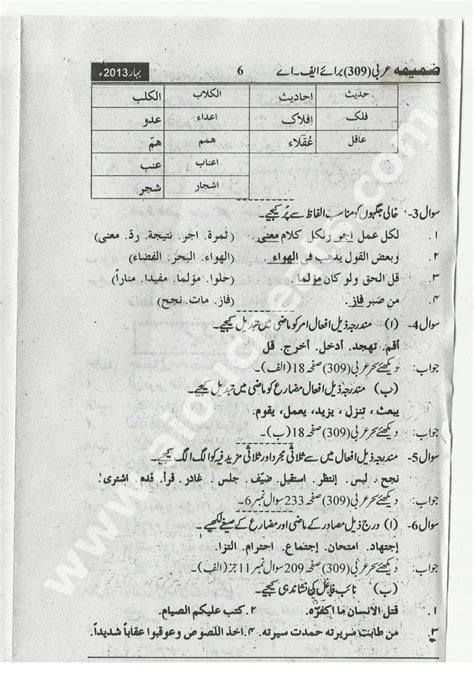 ضمیمہ عربی (309) برائے ایف۔اے 6 بہار 2013ء
حدیث احادیث الکلاب الکلب
فلک افلاک اعداء عدو
عاقل عُقَلاء همم همّ
اعناب عنب
اشجار شجر
سوال 3- خالی جگہوں کو مناسب الفاظ سے پُر کیجیے۔
۱. لكل عمل اجر ولكل كلام معنى (ثمرة، اجر، نتيجة، ردّ، معنى)
۲. وبعض القول يذهب فى الهواء (الهواء، البحر، الفضاء)
۳. قل الحق ولو كان مؤلما (حلوا، مؤلما، مفيدا، مناراً)
۴. من صبر فاز (فاز، مات، نجح)
سوال 4- (ا) مندرجہ ذیل افعال امر کو ماضی میں تبدیل کیجیے۔
أقم، تهجد، أدخل، أخرج، قل
جواب: دیکھئے بحر عربی (309) صفحہ 18 (الف)۔
(ب) مندرجہ ذیل افعال مضارع کو ماضی میں تبدیل کیجیے۔
يبعث، تنزل، يزيد، يعمل، يقوم.
جواب: دیکھئے بحر عربی (309) صفحہ 18 (ب)۔
سوال 5- مندرجہ ذیل افعال میں سے ثلاثی مجرد اور ثلاثی مزید فیہ کو الگ الگ کیجیے۔
نجح، لبس، إنتظر، استقبل، ضيّف، جلس، غادر، قرأ، قدم، اشترى
جواب: دیکھئے بحر عربی (309) صفحہ 233 سوال نمبر 6۔
سوال 6- (ا) درج ذیل مصادر کے ماضی اور مضارع کے صیغے لکھیے۔
إجتهاد، امتحان، إجتماع، احترام، التزا.
دیکھئے بحر عربی (309) صفحہ 209 سوال نمبر 11 جز (الف)۔
(ب) نائب فاعل کی نشاندہی کیجیے۔
۱. قتل الانسان ما اكفره. ۲. كتب عليكم الصيام.
۳. من طابت سريرته حمدت سيرته. ۴. اخذ اللصوص وعوقبوا عقاباً شديداً.